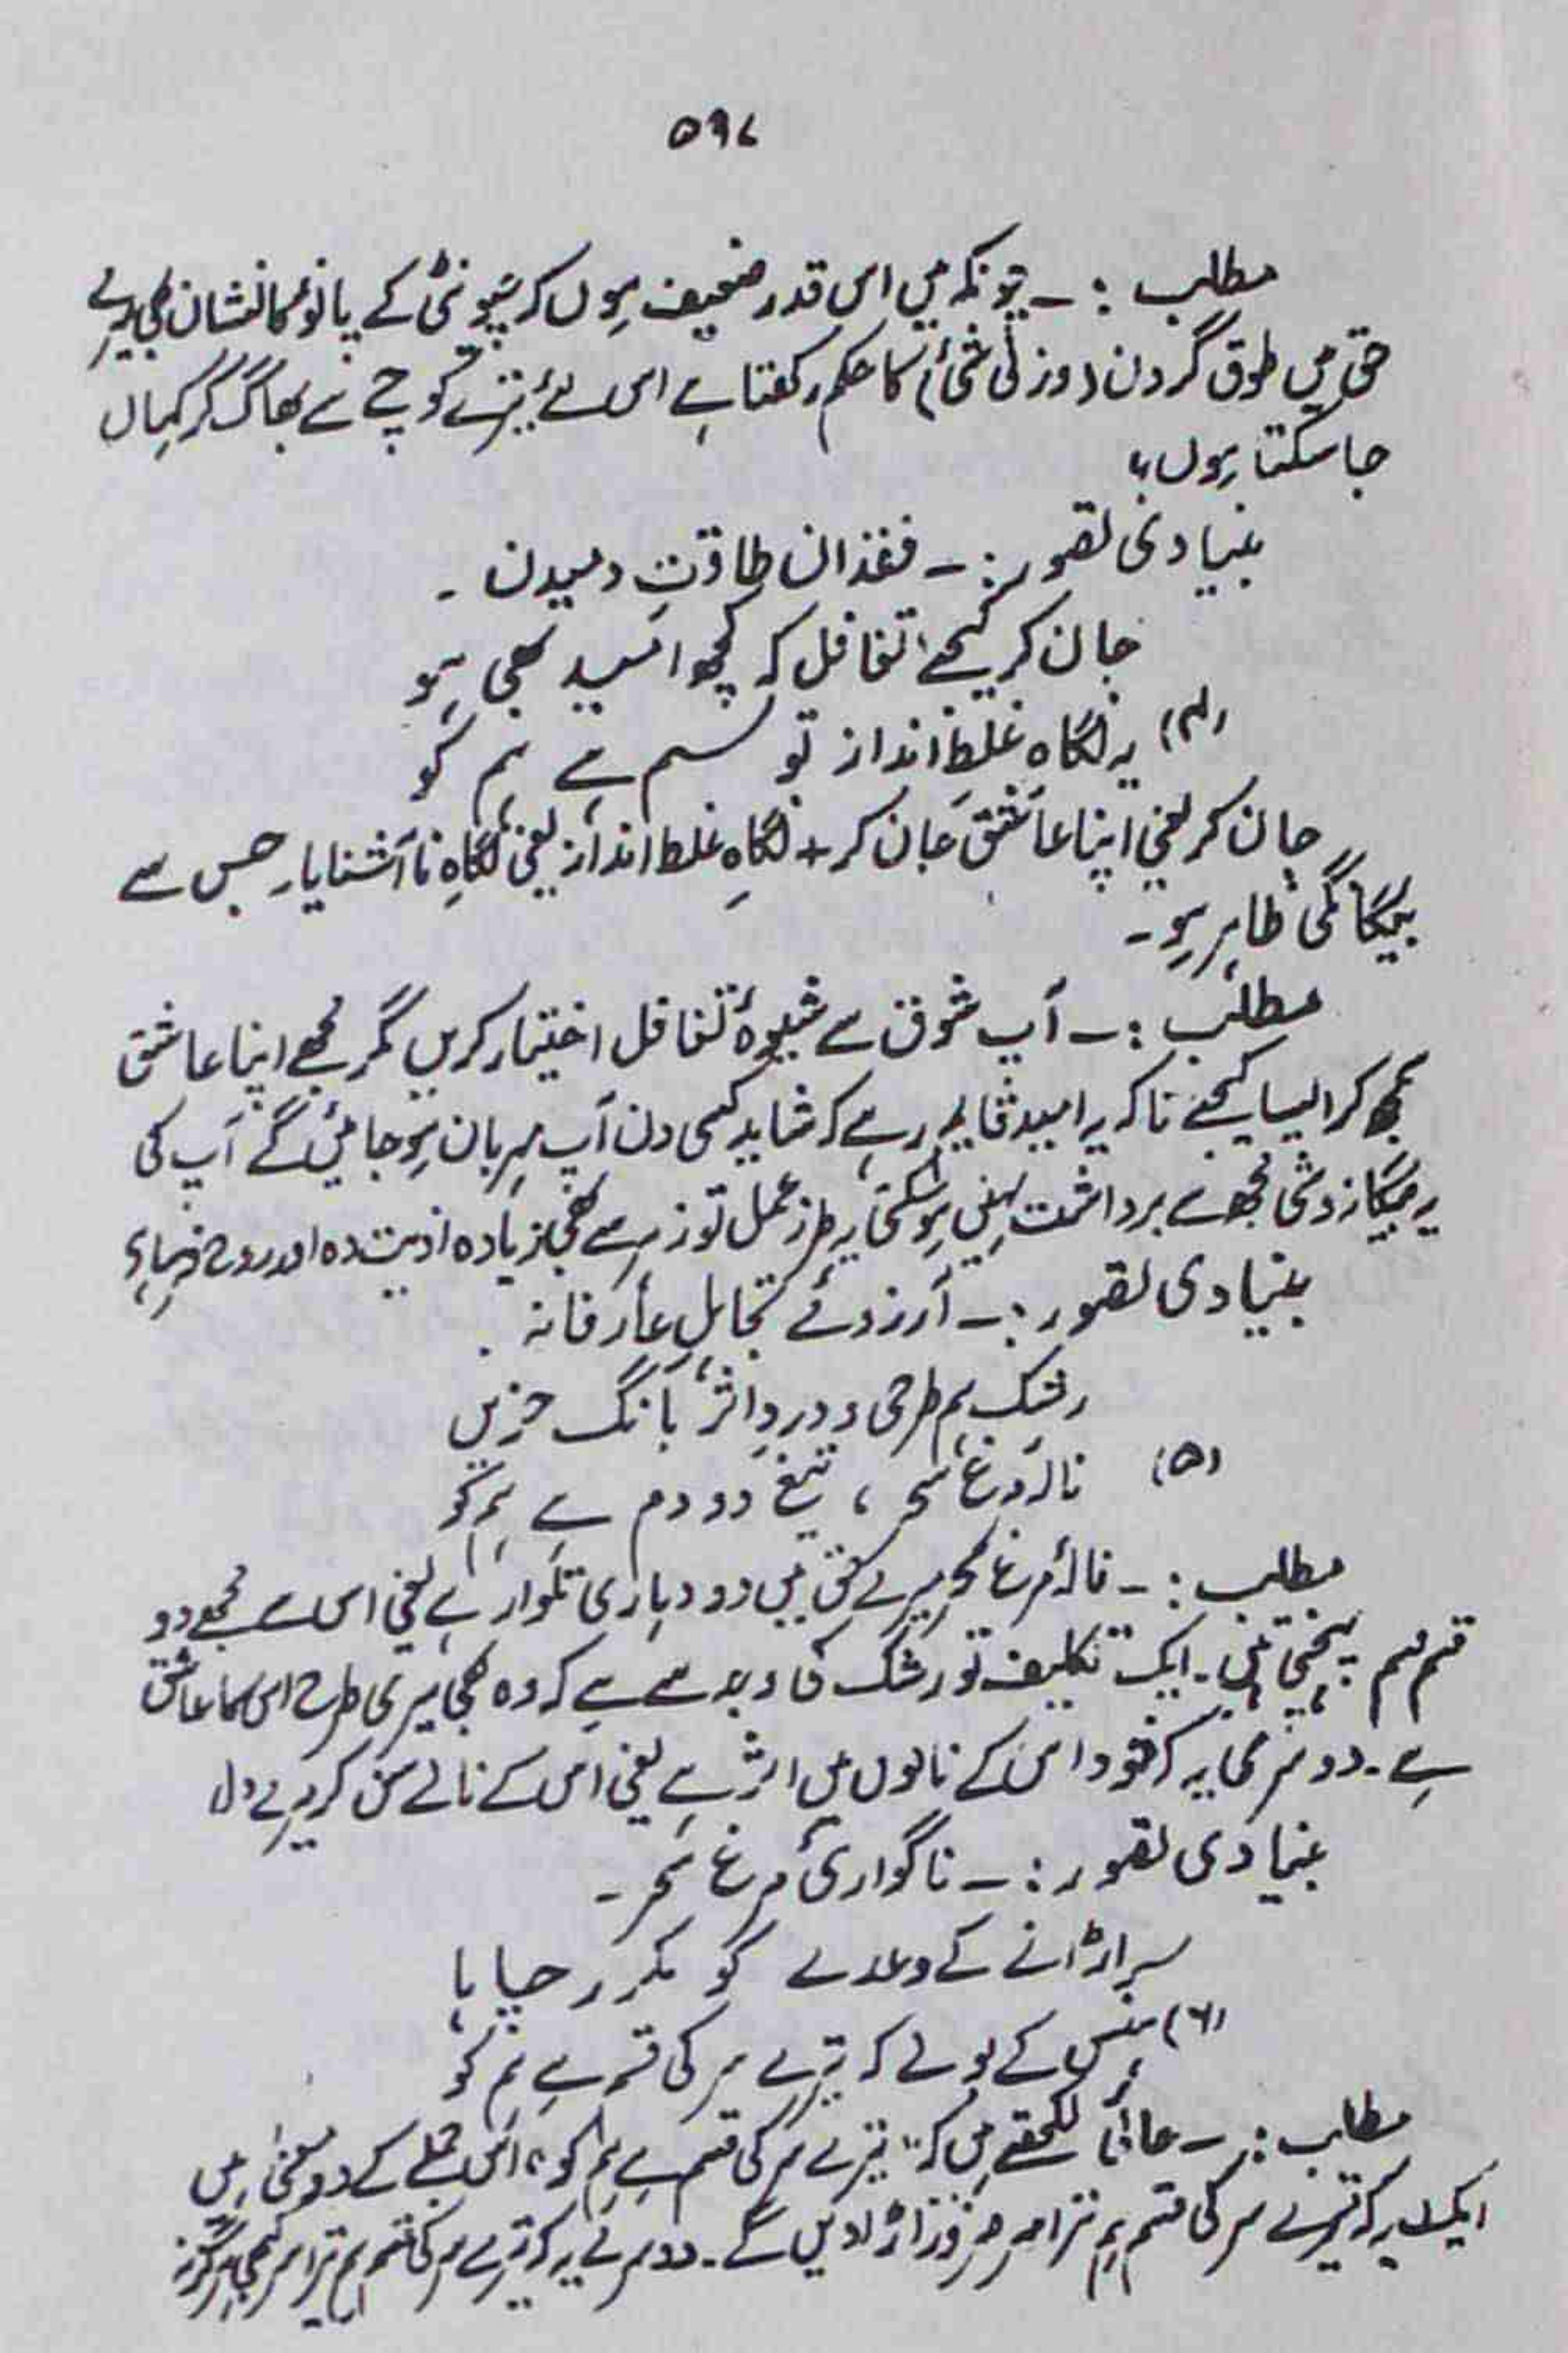 ۵۹۷
مطلب :۔ چونکہ میں اس قدر ضعیف ہوں کہ چیونٹی کے پانو کا نشان بھی میرے
حق میں طوق گردن (وزنی شئے) کا حکم رکھتا ہے اس لئے تیرے کوچے سے بھاگ کر کہاں
جا سکتا ہوں؟
بنیادی تصور :۔ فقدان طاقتِ رمیدن ۔
جان کر کیجے تغافل کہ کچھ امید بھی ہو
(۴) یہ نگاہِ غلط انداز تو سم ہے ہم کو
جان کر یعنی اپنا عاشق جان کر + نگاہِ غلط انداز یعنی نگاہِ ناآشنایا۔ جس سے
بیگانگی ظاہر ہو ۔
مطلب :۔ آپ شوق سے شیوۂ تغافل اختیار کریں مگر مجھے اپنا عاشق
سمجھ کر ایسا کیجئے تاکہ یہ امید قایم رہے کہ شاید کسی دن آپ مہربان ہو جائیں گے آپ کی
یہ بیگانہ وشی مجھ سے برداشت نہیں ہو سکتی یہ طرز عمل تو زہر سے بھی زیادہ اذیت دہ اور روح فرسا ہے
بنیادی تصور :۔ آرزوئے تجاہلِ عارفانہ ۔
رشک ہم طرحی و دردِ اثرِ بانگ حزیں
(۵) نالۂ مرغ سحر ، تیغ دو دم ہے ہم کو
مطلب :۔ نالۂ مرغ سحر میرے حق میں دو دہاری تلوار ہے یعنی اس سے مجھے دو
قسم پہنچی ہیں ۔ ایک تکلیف تو رشک کی وجہ سے ہے کہ وہ بھی میری طرح اس کا عاشق
ہے ۔ دوسری یہ کہ خود اس کے نالوں میں اثر ہے یعنی اس کے نالے سن کر میرے دل
بنیادی تصور :۔ ناگواریٔ مرغ سحر ۔
سر اڑانے کے وعدے کو مکرر چاہا
(۶) ہنس کے بولے کہ تیرے سر کی قسم ہے ہم کو
مطلب :۔ لکھتے ہیں کہ "تیرے سر کی قسم ہے ہم کو" اس جملے کے دو معنیٰ ہیں
ایک یہ کہ تیرے سر کی قسم ہم تیرا سر ضرور اڑا دیں گے ۔ دوسرے یہ کہ تیرے سر کی قسم ہم تیرا سر کبھی ہرگز نہ